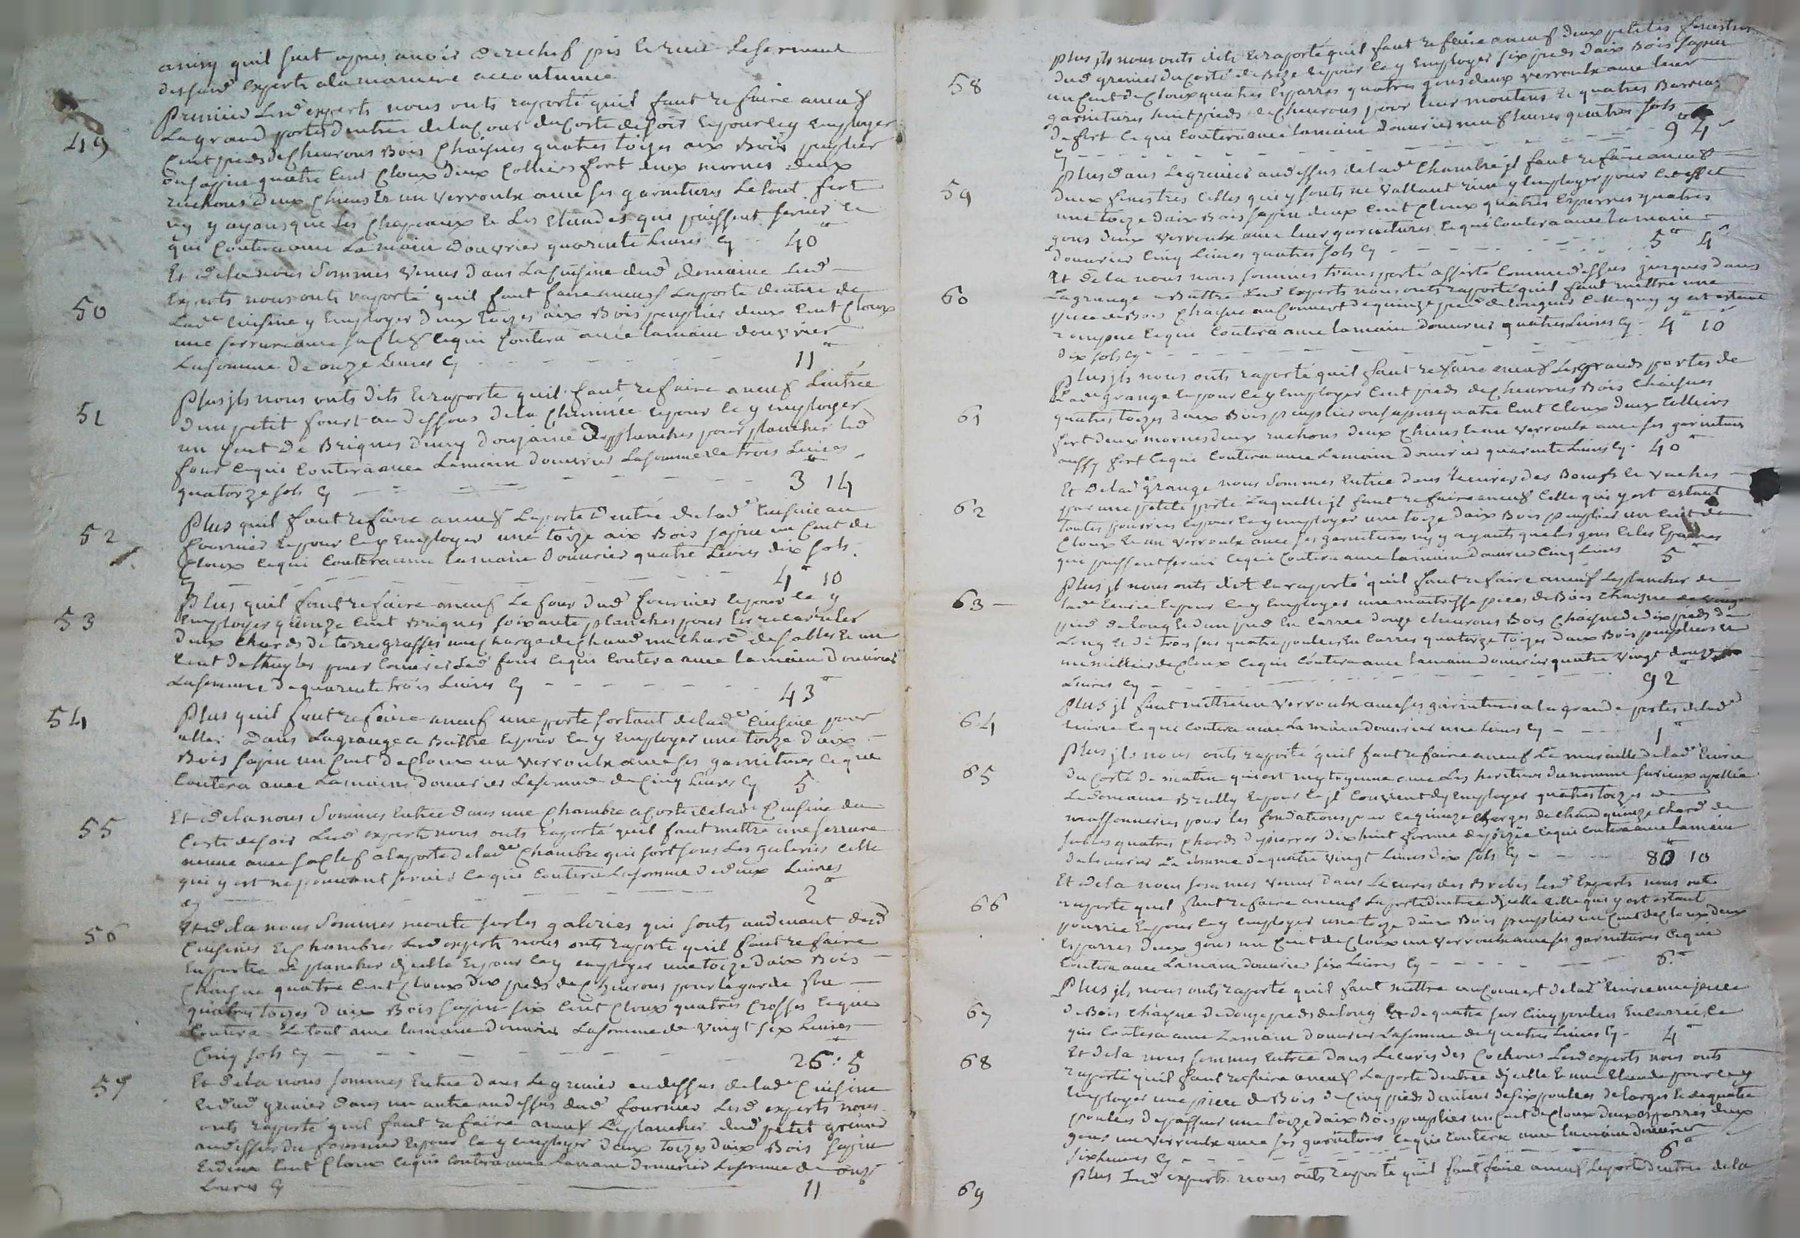 ainsy quil suit apres avoir derechef pris et reçu le serment
desdits experts a la maniere accoutumée
Premier Lesd experts nous onts raporté quil faut refaire aneuf
49
La grand porte dentrée de la Cour du Costé de soir et pour ce y employer
Cent pieds de Cheurons Bois Chaignes quatres toizes aix Bois peuplier
ou sapin quatre Cent Cloux deux Colliers fert deux mornes deux
ruchons deux Chuns et un verroulx avec ses garnitures Le tout fert
ny y ayans que les Chapeaux et Les Etaudes qui puissent servir ce
qui Contera avec La main douvrier quarente Livres Cy 40
Et de la nous Sommes venus dans La Cuisine dud Domaine Lesd
50
Experts nous onts raporté quil faut faire aneuf La porte dentrée de
Lade Cuisine y Employer deux toizes aix Bois peuplier deux Cent Cloux
une serrure avec sa Clef Ce qui Contera avec la main douvrier
La somme de onze Livres Cy 11
51
Plus jls nous onts dits et raporté quil faut refaire aneuf Lentrée
dun petit fourt au dessous de la Cheminée et pour ce y employer
un Cent de Briques d'une Douzaine de planches pour planches led
four ce qui Contera avec La main douvrier La somme de trois Livres
quatorze sols Cy 3 14
52
Plus quil faut refaire aneuf La porte dentrée de lade Cuisine au
fournier et pour ce y Employer une toize aix Bois sapin un Cent de
Cloux ce qui Contera avec la main douvrier quatre Livres dix sols
Cy 4 10
53
Plus quil faut refaire aneuf Le four dud fournier et pour ce y
Employer quinze Cent Briques soixante planches pour les recarreler
deux Chards de terre grasse une Charge de Chaud un Chard de sables et un
Cent de thuyles pour Couvrir Led four ce qui Contera avec la main douvrier
La somme de quarente trois Livres Cy 43
54
Plus quil faut refaire aneuf une porte sortant de lade Cuisine pour
aller Dans La grange a Battre et pour ce y Employer une toize daix
Bois sapin un Cent de Cloux un verroulx avec ses garnitures ce qui
Contera avec La main douvrier La somme de Cinq Livres Cy 5
55
Et de la nous Sommes Entrée dans une Chambre a Costé de lade Cuisine du
Costé de soir Lesd experts nous onts raporté quil faut mettre une serrure
neuve avec sa Clef a la porte de lade Chambre qui sort sous Les galeries celle
qui y est ne pouvant servir ce qui Contera La somme de deux Livres
Cy 2
56
Et de la nous Sommes monté sur les galeries qui sonts au devant desd
Cuisines et Chambres Lesd experts nous onts raporté quil faut refaire
En partie Le plancher dycelle et pour ce y employer une toize daix Bois
Chaigne quatre Cent Cloux dix pieds de Cheurons pour le garde fou
quatres toizes daix Bois sapin six Cent Cloux quatres Crosses ce qui
Contera Le tout avec la main douvrier La somme de vingt six Livres
Cinq sols Cy 26 5
57
Et de la nous sommes Entrée dans Le grenier au dessus de lade Cuisine
Et dud grenier dans un autre au dessus dud fournier Lesd experts nous
onts raporté quil faut refaire aneuf Le plancher dud petit grenier
au dessus du fournier et pour ce y employer deux toizes daix Bois sapin
Et deux Cent Cloux ce qui Contera avec La main douvrier La somme de onze
Livres Cy 11
58
Plus jls nous onts dits et raporté quil faut refaire aneuf deux petites fenestres
dud grenier du Costé de Bize et pour ce y Employer six pieds daix Bois sapin
un Cent de Cloux quatres Esparres quatres gons deux verroulx avec leur
garnitures huit pieds de Cheurons pour leur montens et quatres Barreaux
de fert ce qui Contera avec la main douvrier neuf livres quatres sols
Cy 9 4
59
Plus dans Le grenier au dessus de lade Chambre jl faut refaire aneuf
deux fenestres Celles qui y sonts ne vallant rien y Employer pour cet effet
une toize daix Bois sapin deux Cent Cloux quatres Esparres quatres
gons deux verroulx avec leur garnitures ce qui Contera avec la main
douvrier Cinq Livres quatres sols Cy 5 4
60
Et de la nous nous sommes transporté assisté Comme dessus jusques dans
La grange a Battre Lesd Experts nous onts raporté quil faut mettre une
piece de Bois Chaigne au Couvert de quinze pieds de longueur Celle qui y est estant
rompue ce qui Contera avec la main douvrier quatres Livres Cy 4 10
dix sols Cy
61
Plus jls nous onts raporté quil faut refaire aneuf Les grands portes de
Lade grange et pour ce y Employer Cent pieds de Cheurons Bois Chaignes
quatres toizes daix Bois peuplier ou sapin quatre Cent Cloux deux Colliers
fert deux mornes deux ruchons deux Chuns et un verroulx avec ses garnitures
aussy fert ce qui Contera avec La main douvrier quarente Livres Cy 40
62
Et de lade grange nous Sommes Entrée dans Lecurie des Boeufs et vaches
par une petite porte Laquelle jl faut refaire aneuf Celle qui y est estant
toutes pourries et pour ce y employer une toize daix Bois peuplier un Cent de
Cloux et un verroulx avec ses garnitures ny y ayants que les gons et les Esparres
qui puissent servir ce qui Contera avec la main douvrier Cinq Livres 5
63
Plus jls nous onts dit et raporté quil faut refaire aneuf Le plancher de
lade Ecurie et pour ce y Employer une maitresse piece de Bois Chaigne de vingt
pied de long et dun pied En Carrée douze Cheurons Bois Chaigne de dix pieds de
Long et de trois sur quatre poulces En Carrée quatorze toizes daix Bois peupliers et
un millier de Cloux ce qui Contera avec la main douvrier quatre vingt douze
Livres Cy 92
64
Plus jl faut mettre un verroulx avec ses garnitures a La grande portes de lade
Ecurie ce qui Contera avec La main douvrier une Livres Cy 1
65
Plus jls nous onts raporté quil faut refaire aneuf La muraille de lade Ecurie
du Costé de matin qui est mytoyenne avec Les heritiers du nommé furieux apellée
Le domaine Brully et pour ce jl Convient dy Employer quatres toizes de
massonneries pour les fondations pour ce quinze Charges de Chaud quinze Chard de
sables quatres Chards de pierres dix huit
de louvrier La somme de quatre vingt Livres dix sols Cy 80 10
66
Et de la nous sommes venus dans Lecuries des Brebis Lesd Experts nous ont
raporté quil faut refaire aneuf La porte dentrée dycelle Celle qui y est estant
pourrie et pour ce y employer une toize daix Bois peuplier un Cent de Cloux deux
Esparres deux gons un Cent de Cloux un verroulx avec ses garnitures ce qui
Contera avec La main douvrier six Livres Cy 6
67
Plus jls nous onts raporté quil faut mettre au Couvert de lade Ecurie une piece
de Bois Chaigne de douze pieds de long et de quatre sur Cinq poulces En Carrée ce
qui Contera avec La main douvrier La somme de quatres Livres Cy 4
68
Et de la nous sommes Entrée dans Lecuries des Cochons Lesd experts nous onts
raporté quil faut refaire aneuf La porte dentrée dycelle et une Etaude pour ce y
Employer une piece de Bois de Cinq pieds dauteur de six poulces de larges et de quatre
poulces depaisseur une toize daix Bois peuplier un Cent de Cloux deux esparres deux
gons un verroulx avec ses garnitures ce qui Contera avec la main douvrier
six Livres Cy 6
69
Plus Lesd experts nous onts raporté quil faut faire aneuf La porte dentrée de la